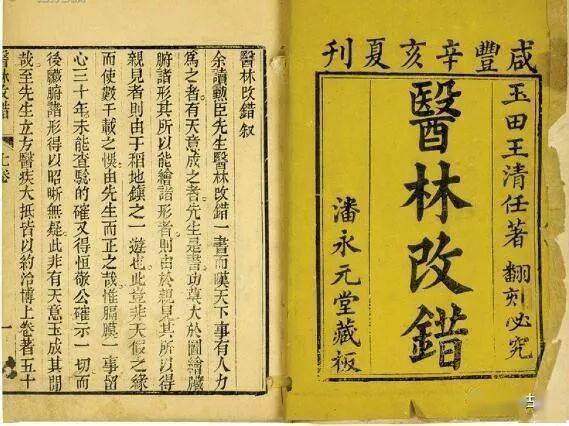 咸豐辛亥夏刊
玉田王清任著 翻刻必究
醫林改錯
潘永元堂藏板
醫林改錯敘
余讀勲臣先生醫林改錯一書而嘆天下事有人力
為之者有天意成之者先生是書功莫大於圖繪臟
腑諸形其所以能繪諸形者則由於親見其所以得
親見者則由于稻地鎮之一遊也此豈非天假之緣
而使數千載之悞由先生而正之哉惟膈膜一事留
心三十年未能查驗的確又得恒敬公確示一切而
後臟腑諸形得以昭晰無疑此非有天意玉成其間
哉至先生立方醫疾大抵皆以約洽博上卷著五十
醫林改錯
上卷
一